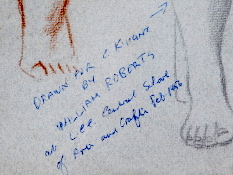 DRAWN FOR C
BY
WILLIAM ROBERTS
at L.C.C. Central School
of Arts and Crafts Feb